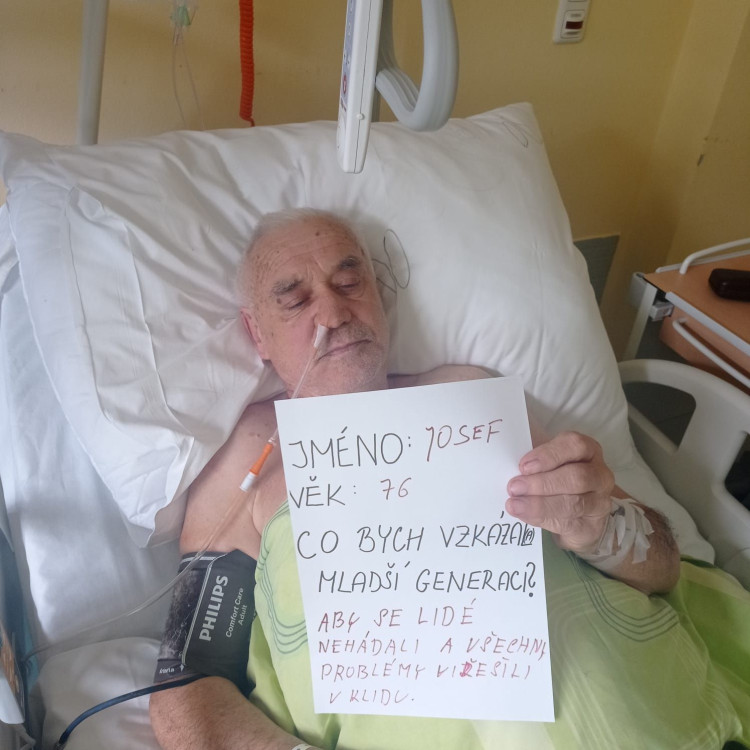 JMÉNO: JOSEF
VĚK: 76
CO BYCH VZKÁZAL(A)
MLADŠÍ GENERACI?
ABY SE LIDÉ
NEHÁDALI A VŠECHNY
PROBLÉMY VIŘEŠILI
V KLIDU.
PHILIPS
Comfort Care
Adult